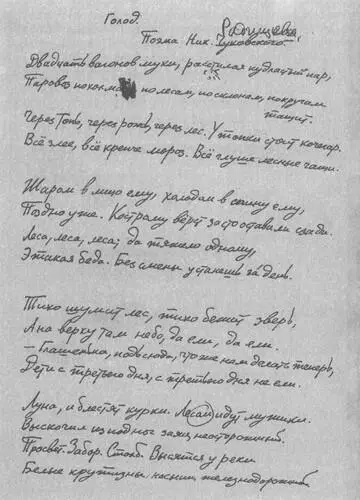 Голод.
Радищева
Поэма Ник. Чуковского
Двадцать вагонов муки, расстилая кудлатый пар,
Паровоз по лесам, по склонам, по кручам
тащит.
Через топь, через рожь, через лес. У топки стоит кочегар.
Всё злее, всё крепче мороз. Всё глуше лесные чащи.
Жаром в лицо ему, холодом в спину ему,
Поздно уже. Кострому вёрст за сто оставили сзади.
Леса, леса, леса; да тяжело одному,
Этакая беда. Без смены устанешь за день.
Тихо шумит лес, тихо бежит зверь,
А на верху там небо, да ели, да ели.
– Глашенька, подь сюда, что же нам делать теперь,
Дети с третьего дня, с третьего дня не ели.
Луна, и блестят курки. Лесом идут мужики.
Выскочил из под ног заяц неосторожный.
Просвет. Забор. Столб. Высятся у реки
Белые крутизны насыпи железнодорожной